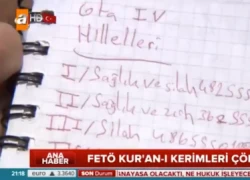 aHD
Gta IV
Hilleleri
I/ Sağlık ve silah 482555
II/ Sağlık ve zırh 362555
III/ Silah 486555
ANA HABER
FETÖ KUR'AN-I KERİMLERİ ÇÖ
21:18
INAYASA OLACAKTI, NE HUKUK İŞLEYEC